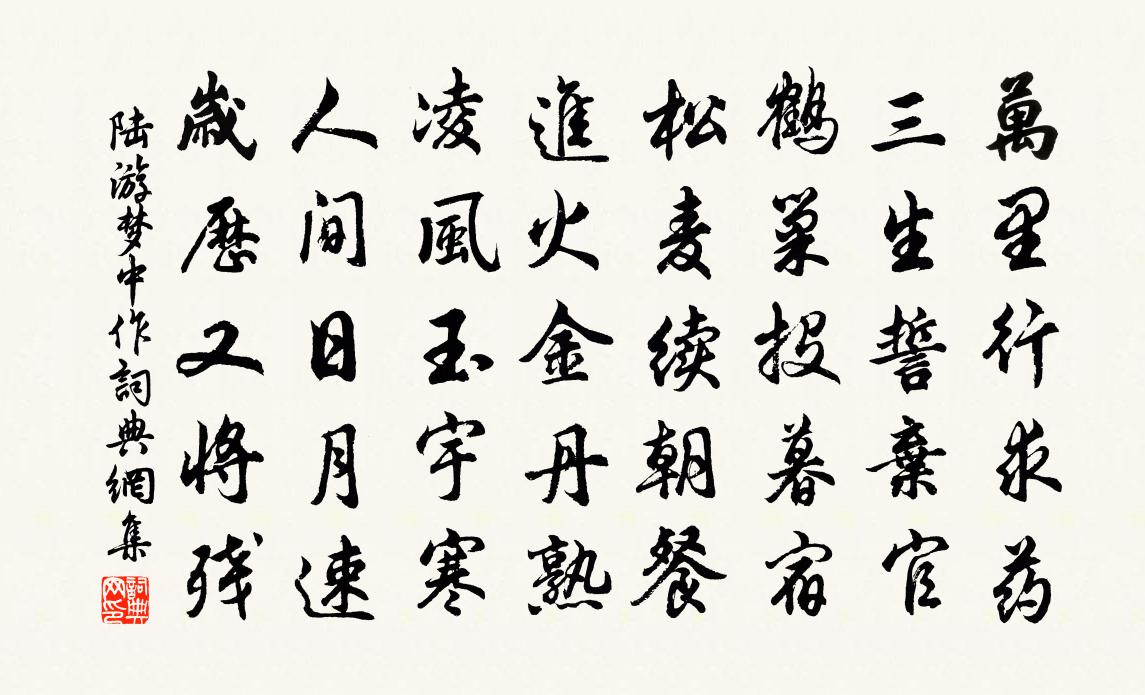 萬里行求药
三生誓棄官
鹤巢投暮宿
松麦续朝餐
進火金丹熟
凌風玉宇寒
人间日月速
歳歷又将残
陆游梦中作詞典網集
詞典
网印